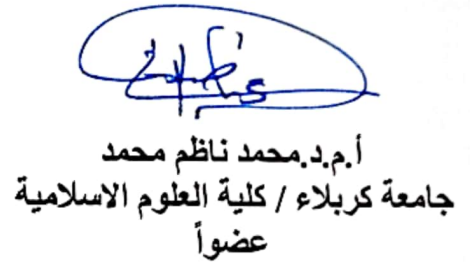 أ.م.د.محمد ناظم محمد
جامعة كربلاء / كلية العلوم الاسلامية
عضواً